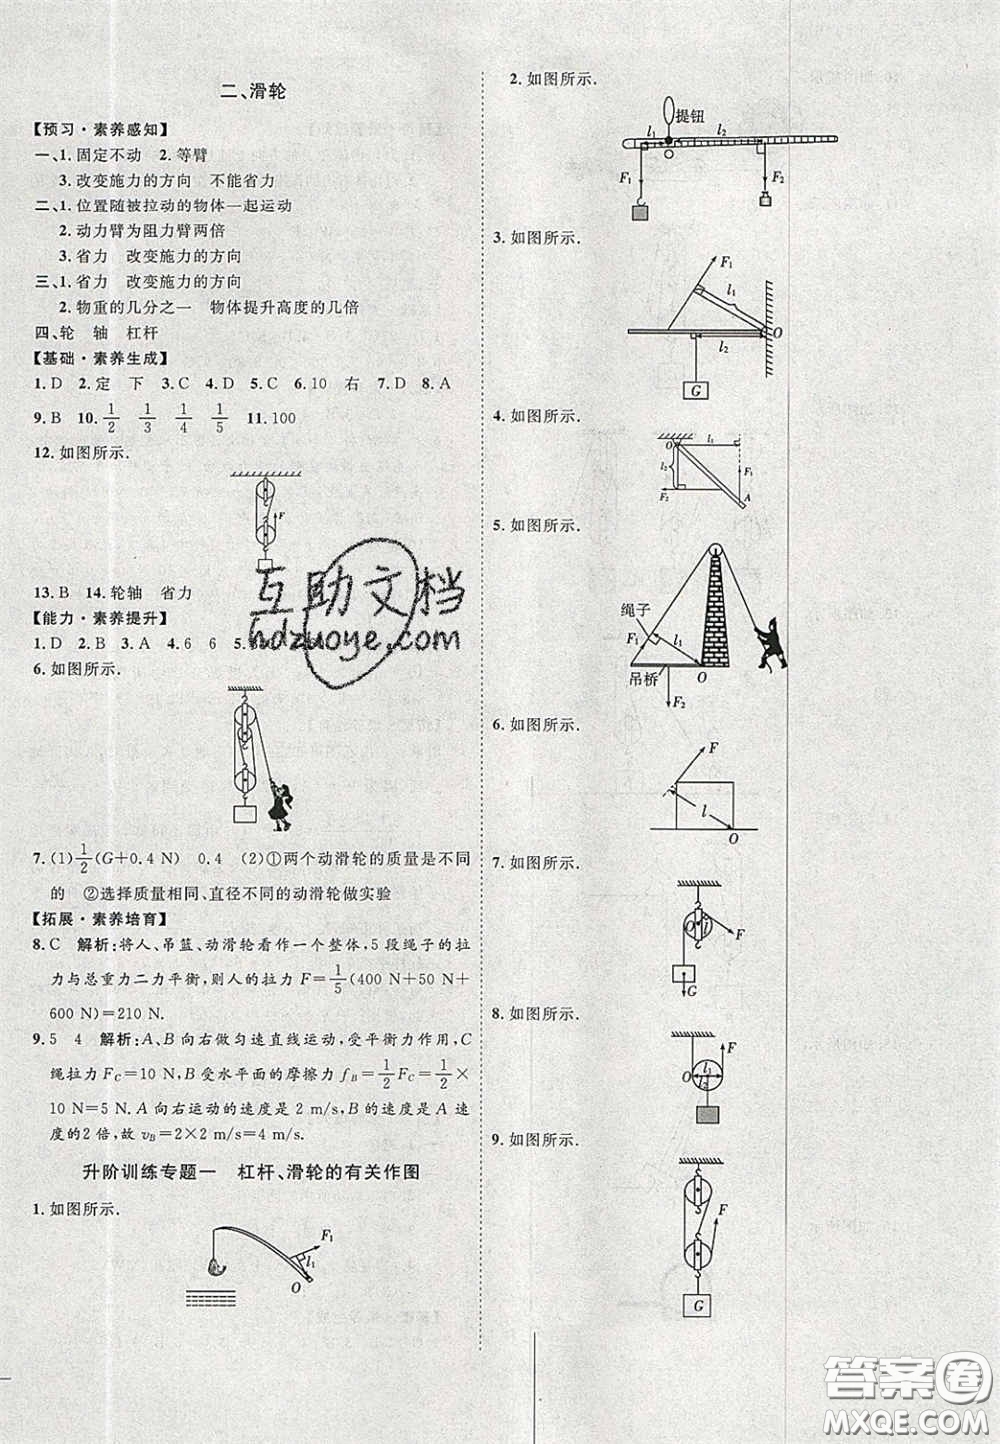 二、滑轮
【预习·素养感知】
一、1.固定不动 2.等臂
3.改变施力的方向 不能省力
二、1.位置随被拉动的物体一起运动
2.动力臂为阻力臂两倍
3.省力 改变施力的方向
三、1.省力 改变施力的方向
2.物重的几分之一 物体提升高度的几倍
四、轮 轴 杠杆
【基础·素养生成】
1.D 2.定 下 3.C 4.D 5.C 6.10 右 7.D 8.A
9.B 10.1/2 1/3 1/4 1/5 11.100
12.如图所示.
F
13.B 14.轮轴 省力
【能力·素养提升】
1.D 2.B 3.A 4.6 6
6.如图所示.
7.(1)1/2(G+0.4 N) 0.4 (2)①两个动滑轮的质量是不同
的 ②选择质量相同、直径不同的动滑轮做实验
【拓展·素养培育】
8.C 解析:将人、吊篮、动滑轮看作一个整体,5段绳子的拉
力与总重力二力平衡,则人的拉力F=1/5(400 N+50 N+
600 N)=210 N.
9.5 4 解析:A、B向右做匀速直线运动,受平衡力作用,C
绳拉力F_C=10 N,B受水平面的摩擦力f_B=1/2F_C=1/2×
10 N=5 N.A向右运动的速度是2 m/s,B的速度是A速
度的2倍,故v_B=2×2 m/s=4 m/s.
升阶训练专题一 杠杆、滑轮的有关作图
1.如图所示.
F₁
l₁
O
2.如图所示.
提钮
l₁
l₂
F₁
F₂
3.如图所示.
F₁
l₁
O
l₂
G
4.如图所示.
O
l₁
l₂
F₁
F₂
A
5.如图所示.
绳子
F₁
l₁
吊桥
O
F₂
6.如图所示.
F
l
O
7.如图所示.
O
l
F
G
8.如图所示.
F
O
l₁
l₂
9.如图所示.
F
G
互助文档
hdzuoye.com
答案圈
MXQE.COM